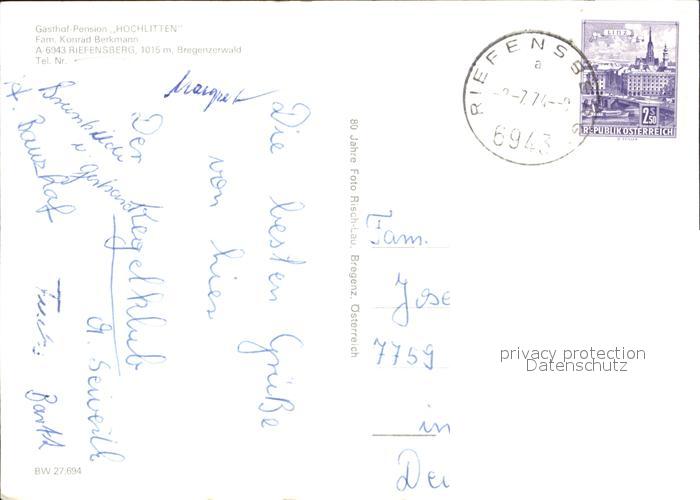 Gasthof-Pension „HOCHLITTEN"
Fam. Konrad Berkmann
A-6943 RIEFENSBERG, 1015 m, Bregenzerwald
Tel. Nr.
Die besten Grüße
von hier
Der Kegelklub
Margret
Brunhilde
u. Gerhard
A. Banzhaf
A. Seiwerth
Barth
BW 27.694
80 Jahre Foto Risch-Lau, Bregenz, Österreich
RIEFENSBE
a
-7.74-
6943
LINZ
2 S 50
REPUBLIK ÖSTERREICH
Fam.
Jose
7759
in
privacy protection
Datenschutz